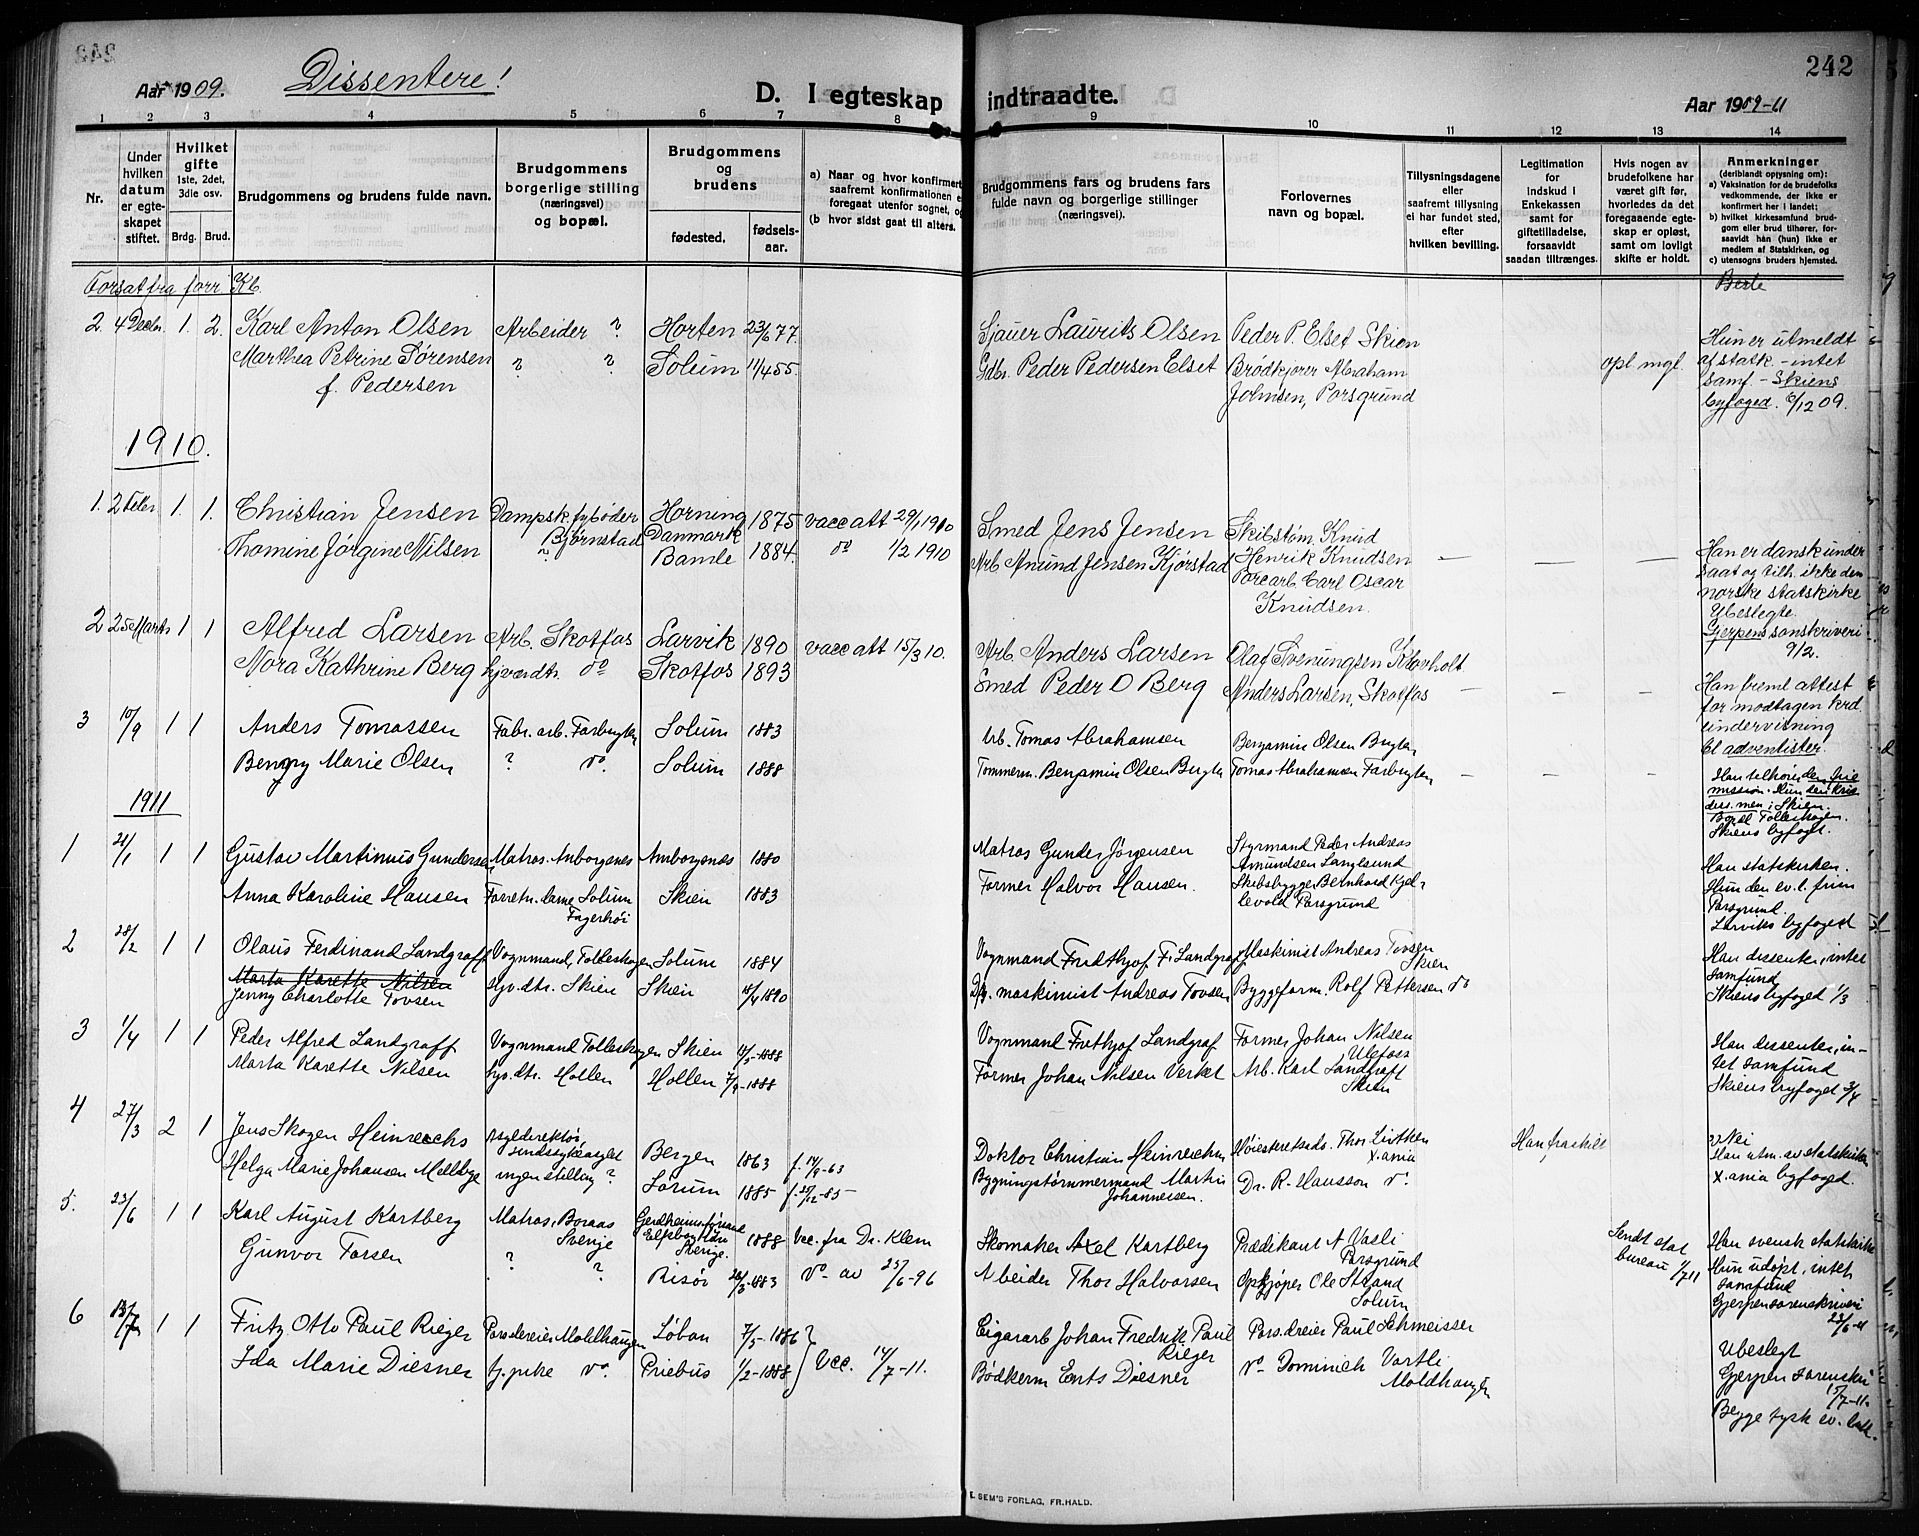 Aar 1909.
Dissentere!
D. I egteskap indtraadte.
242
Aar 1909-11
1 2 3 4 5 6 7 8 9 10 11 12 13 14
Nr.
Under hvilken datum er egteskapet stiftet.
Hvilket gifte 1ste, 2det, 3die osv.
Brdg. Brud.
Brudgommens og brudens fulde navn.
Brudgommens borgerlige stilling (næringsvei) og bopæl.
Brudgommens og brudens
fødested. fødselsaar.
a) Naar og hvor konfirmert
saafremt konfirmationen e
foregaat utenfor sognet, og
(b hvor sidst gaat til alters.
Brudgommens fars og brudens fars
fulde navn og borgerlige stillinger
(næringsvei).
Forlovernes
navn og bopæl.
Tillysningsdagene
eller
saafremt tillysning
ei har fundet sted,
efter
hvilken bevilling.
Legitimation
for
indskud i
Enkekassen
samt for
giftetilladelse,
forsaavidt
saadan tiltrænges.
Hvis nogen av
brudefolkene har
været gift før,
hvorledes da det
foregaaende egte-
skap er opløst,
samt om lovligt
skifte er holdt.
Anmerkninger
(deriblandt opysning om):
a) Vaksination for de brudefolks
vedkommende, der ikke er
konfirmert her i landet;
b) hvilket kirkesamfund brud-
gom eller brud tilhører, for-
saavidt han (hun) ikke er
medlem af Statskirken, og
c) utensogns bruders hjemsted.
Forsat fra forr. Kb.
2. 4 Decbr. 1. 2. Karl Anton Olsen Arbeider ? Horten 23/6 77. Sjauer Laurits Olsen Peder P. Elset Skien Hun er utmeldt
Marthea Petrine Sørensen ? ? Solum 11/4 55. Gdbr. Peder Pedersen Elset Brødkjører Abraham opl. mgl. af statsk. - intet
f. Pedersen Johnsen, Porsgrund samf. - Skiens
byfoged. 6/12 09.
1910.
1. 2 Febr 1. 1. Christian Jensen Dampsk. fyrbøder Horning 1875 vacc att 29/1 1910 Smed Jens Jensen Skibstøm. Knud
Bjørnstad Danmark
Thomine Jørgine Nilsen ? Bamle 1884. do 1/2 1910 Arb. Anund Jensen Kjørstad Henrik Knudsen — — — Han er dansk under
Porc arb. Carl Oscar saat og tilh. ikke den
Knudsen. norske statskirke
Ubeslegte.
Gjerpens sorenskriveri
9/2.
2 25 Marts 1 1 Alfred Larsen Arb. Skotfos Larvik 1890 vacc att 15/3 10. Arb. Anders Larsen Olaf Svenungsen Klovholt
Nora Kathrine Berg hjv. datr. do Skotfos 1893 Smed Peder O Berg Anders Larsen, Skotfos — — — Han freml attest
for modtagen krd.
undervisning
til adventister.
3 10/9 1 1 Anders Tomassen Fabr. arb. Solum 1883 Arb. Tomas Abrahamsen Benjamin Olsen
Benny Marie Olsen ? do. Solum 1888 Tømmerm. Benjamin Olsen Tomas Abrahamsen — — — Han tilhører den frie
mission. Hun den kris
diss. men. i Skien.
Skiens byfoget.
1911
1 21/1 1 1 Gustav Martinius Gundersen Matros. Amborgenes Amborgenes 1880 Matros Gunder Jørgensen Styrmand Peder Andreas
Amundsen Langesund Han statskirken.
Anna Karoline Hansen Forretn. dame Solum Skien 1883 Former Halvor Hansen. Skibsbygger Bernhard Kjel- Hun den ev. l. frim
Fagerhøi levold Porsgrund Porsgrund.
Larviks byfoged
2 28/2 1 1 Olaus Ferdinand Landgraff Vognmand, Tolleskogen Solum 1884 Vognmand Fredthjof F. Landgraff Maskinist Andreas Tovsen Han dissenter, intet
Marta Karette Nilsen Skien samfund
Jenny Charlotte Tovsen hjv. dtr. Skien Skien 15/4 1890 maskinist Andreas Tovsen Byggeform. Rolf Pettersen do Skiens byfoged 1/3
3 1/4 1 1 Peder Alfred Landgraff Vognmand Tolleskogen Skien 1888 Vognmand Frithjof Landgraf Former Johan Nilsen Han dissenter, in-
Ulefoss tet samfund
Marta Karette Nilsen hjv. dtr. Hollen Hollen 7/9-1888 Former Johan Nilsen Verket Arb. Karl Landgraff Skiens byfoget 3/4
Skien
4 27/3 2 1 Jens Skogen Heinreechs Asyldirektør, Bergen 1863 f. 14/9-63 Doktor Christian Heinrechs Høiesteretsadv. Thor Lütken Han fraskilt Nei
sindssykeasylet X.ania Han utm. av statskirken
Helga Marie Johansen Mellbye ingen stilling ? Sørum 1885 f. 20/12-85- Bygningstømmermand Martin Dr. R. Hansson do. X.ania byfoged.
Johannesen.
5. 23/6 1 1 Karl August Kartberg Matros, Boraas Gerdheims 1888 Vcc. fra Dr. Klem Skomaker Axel Kartberg Prædikant A Vasli Sendt stat Han svensk statskirke
Sverige Elfsborg län Porsgrund bureau 1/7 11 Hun udøpt, intet
Sverige. samfund
Gunvor Torsen ? ? Risør 26/3-1883 do av 25/6-96 Arbeider Thor Halvorsen Opkjøper Ole Strand Gjerpen sorenskriveri
Solum 23/6-11
6 1 1 Fritz Otto Paul Rieger Porsdreier Moldhaugen Löban 7/5-1886 } Cigararb Johan Fredrik Paul Porsdreier Paul Schmeisser Ubeslegt
Rieger
Ida Marie Diesner tj. pike do. Priebus 1/2-1888 } Vcc. 14/7-11. Bødkerm Diesner do Dominich Vartli Gjerpen sorenskr
Moldhaugen 15/7-11.
Begge tysk ev. luth.
E. SEM'S FORLAG, FR.HALD.